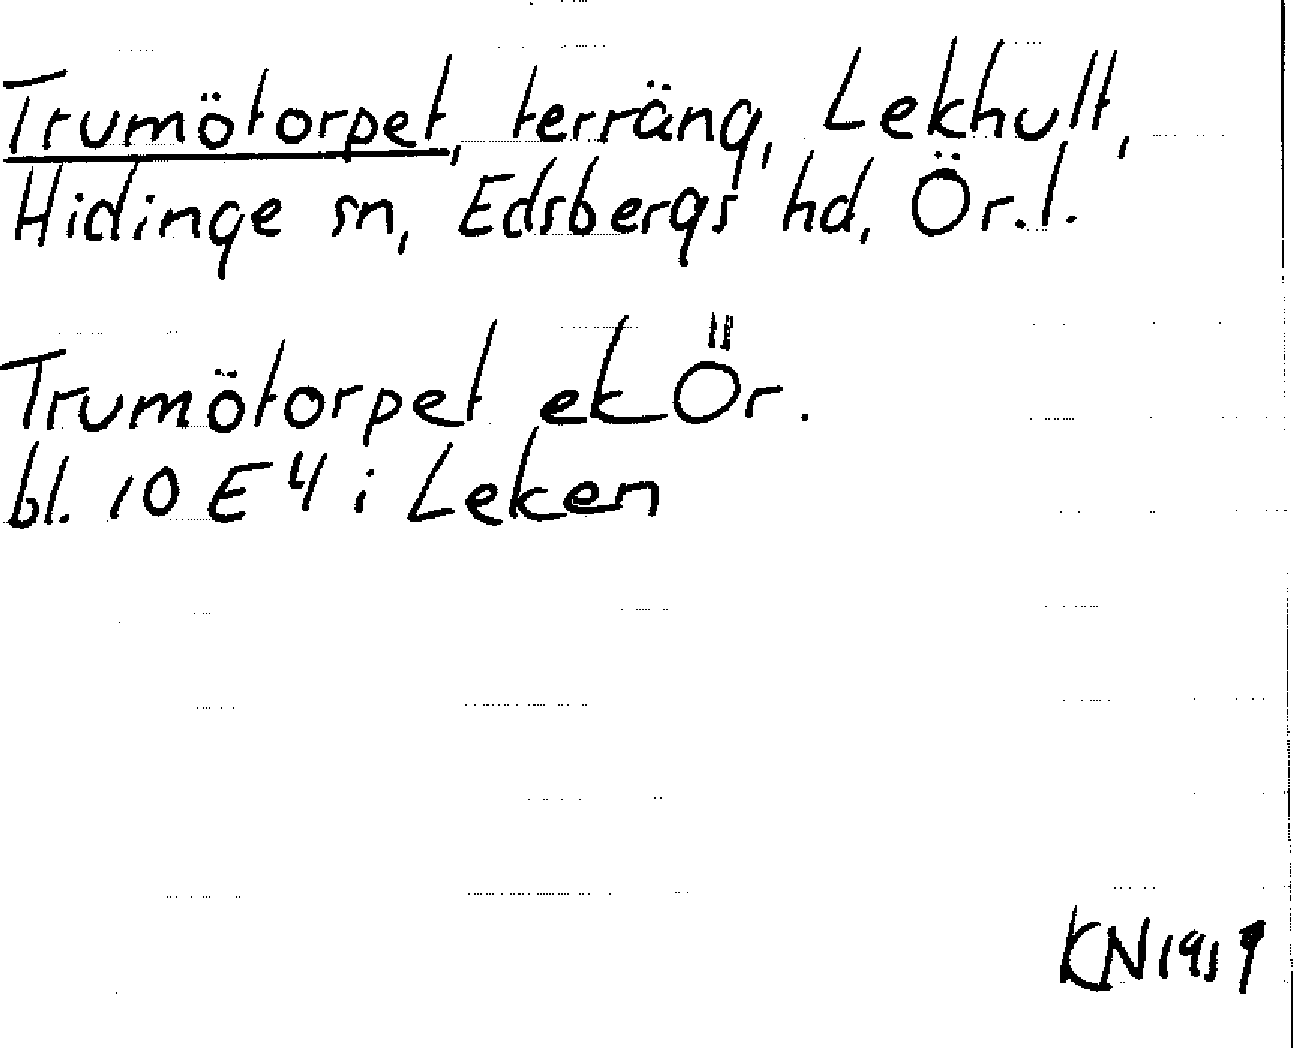 Trumötorpet, terräng, Lekhult,
Hidinge sn, Edsbergs hd, Ör.l.
Trumötorpet ek Ör.
bl. 10 E 4 i Leken